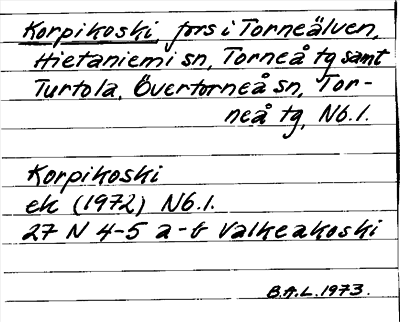 Korpikoski, fors i Torneälven,
Hietaniemi sn, Torneå tg samt
Turtola, Övertorneå sn, Tor-
neå tg, Nb.l.
Korpikoski
ek (1972) Nb.l.
27 N 4-5 a-b Valkeakoski
B.A.L. 1973.